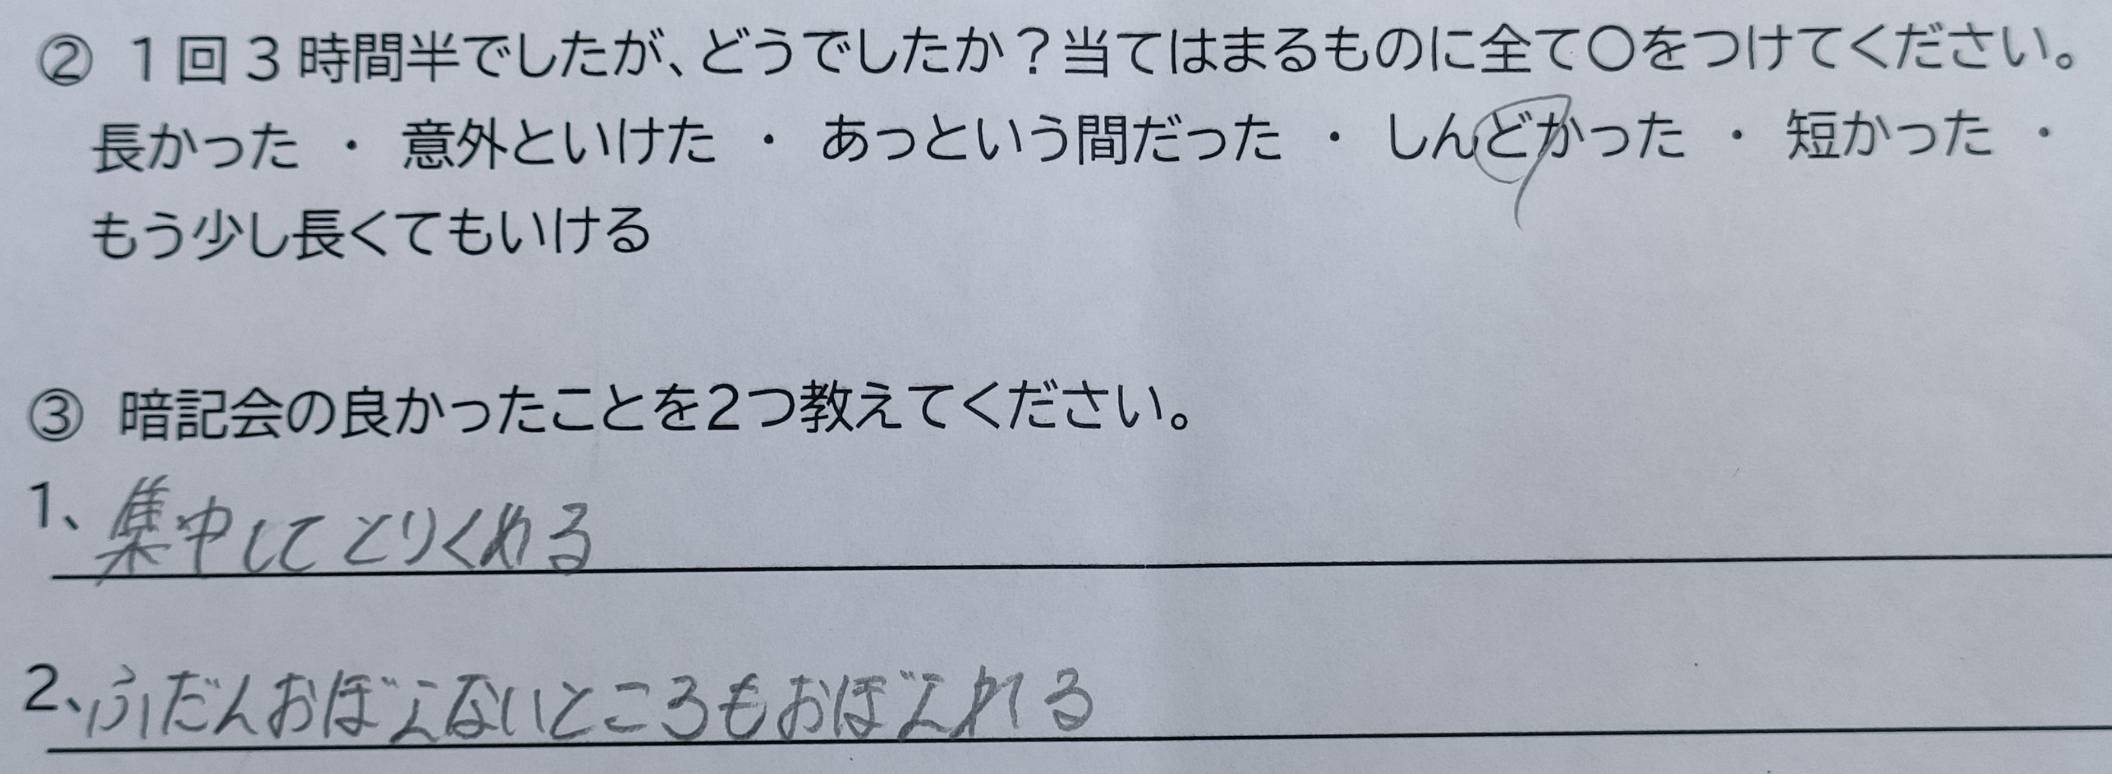 ② 1回3時間半でしたが、どうでしたか？当てはまるものに全て〇をつけてください。
長かった ・ 意外といけた ・ あっという間だった ・ しんどかった ・ 短かった ・
もう少し長くてもいける
③ 暗記会の良かったことを2つ教えてください。
1、集中してとりくめる
2、ふだんおぼえないところもおぼえれる